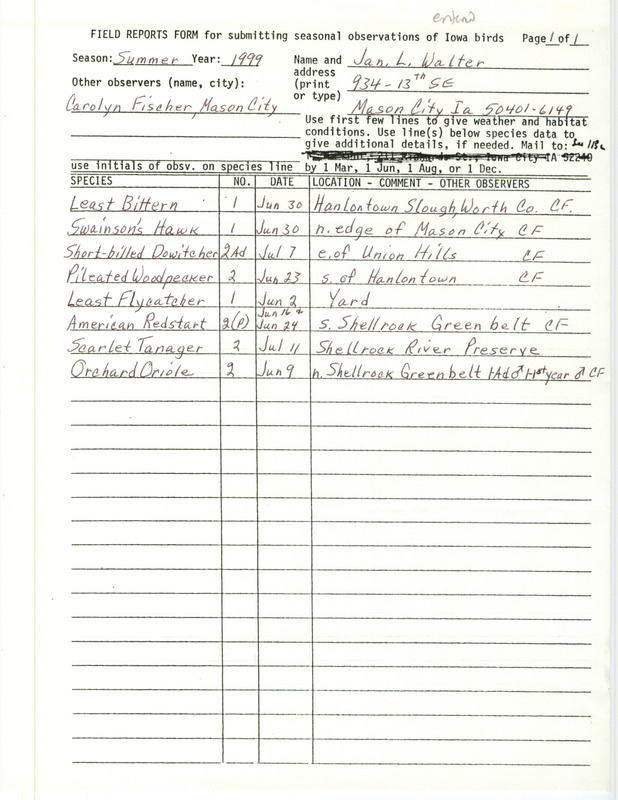 FIELD REPORTS FORM for submitting seasonal observations of Iowa birds Page 1 of 1
Season: Summer Year: 1999
Name and address (print or type)
Jan. L. Walter
934-13th SE
Mason City Ia 50401-6149
Other observers (name, city):
Carolyn Fischer, Mason City
Use first few lines to give weather and habitat
conditions. Use line(s) below species data to
give additional details, if needed. Mail to:
Iowa City IA 52240
use initials of obsv. on species line
by 1 Mar, 1 Jun, 1 Aug, or 1 Dec.
SPECIES NO. DATE LOCATION - COMMENT - OTHER OBSERVERS
Least Bittern 1 Jun 30 Hanlontown Slough, Worth Co. CF.
Swainson's Hawk 1 Jun 30 n. edge of Mason City CF
Short-billed Dowitcher 2 Ad Jul 7 e. of Union Hills CF
Pileated Woodpecker 2 Jun 23 s. of Hanlontown CF
Least Flycatcher 1 Jun 2 Yard
American Redstart 2(P) Jun 16 & Jun 24 s. Shellrock Greenbelt CF
Scarlet Tanager 2 Jul 11 Shellrock River Preserve
Orchard Oriole 2 Jun 9 n. Shellrock Greenbelt 1-Ad ♂ 1-1st year ♂ CF